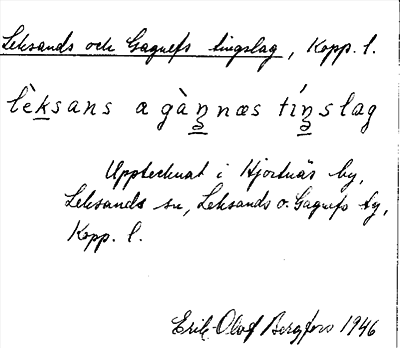 Leksands och Gagnefs tingslag, Kopp. l.
lèksans a gàŋnæs tíŋslag
Upptecknat i Hjortnäs by,
Leksands sn, Leksands o. Gagnefs tg,
Kopp. l.
Erik Olof Bergfors 1946